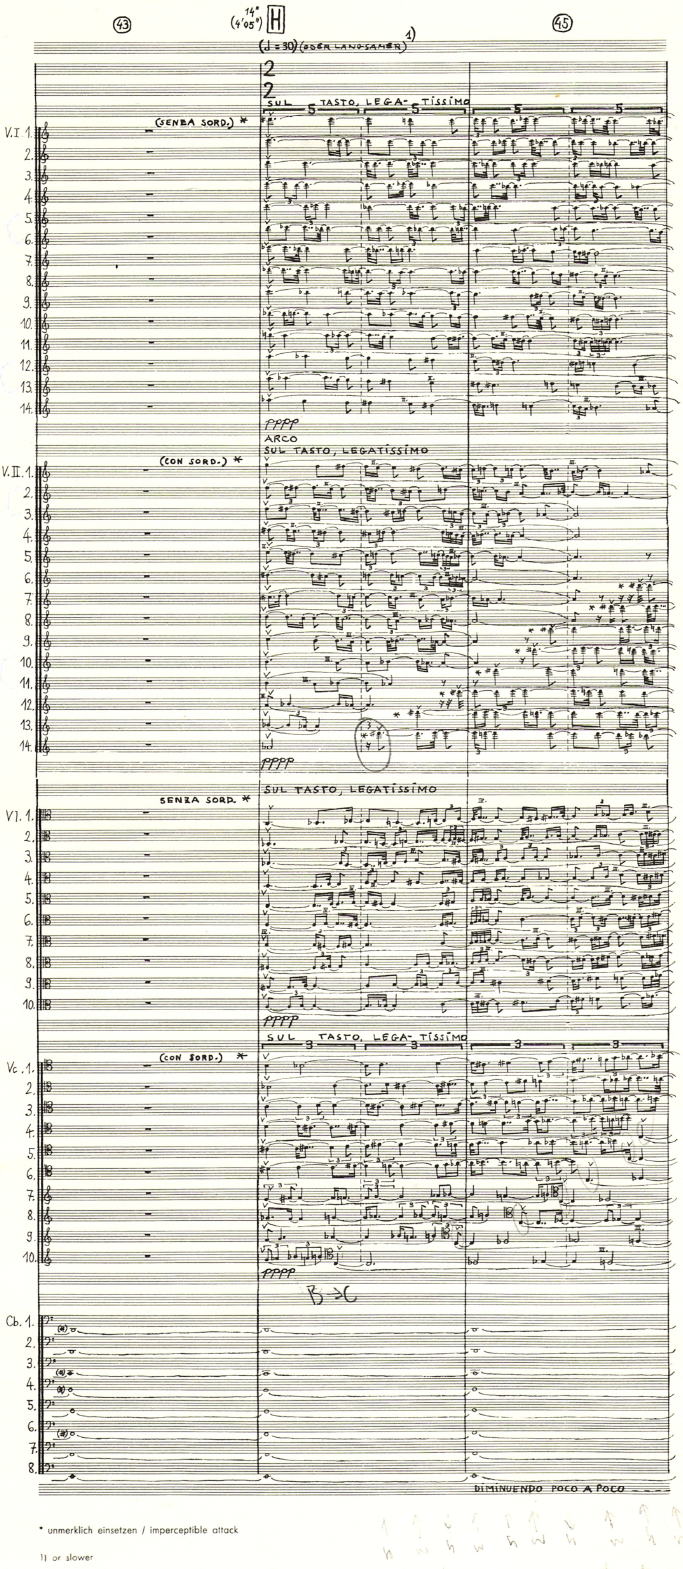 43
14"
(4'05")
H
45
(𝅗𝅥 = 30) (ODER LANGSAMER) 1)
2
2
SUL TASTO, LEGATISSIMO
5 5 5 5
(SENZA SORD.) *
V.I 1.
2.
3.
4.
5.
6.
7.
8.
9.
10.
11.
12.
13.
14.
pppp
ARCO
SUL TASTO, LEGATISSIMO
(CON SORD.) *
V.II. 1.
2.
3.
4.
5.
6.
7.
8.
9.
10.
11.
12.
13.
14.
pppp
SUL TASTO, LEGATISSIMO
SENZA SORD. *
Vl. 1.
2.
3.
4.
5.
6.
7.
8.
9.
10.
pppp
SUL TASTO, LEGA-TISSIMO
3 3 3 3
(CON SORD.) *
Vc. 1.
2.
3.
4.
5.
6.
7.
8.
9.
10.
pppp
B→C
Cb. 1.
2.
3.
4.
5.
6.
7.
8.
DIMINUENDO POCO A POCO
* unmerklich einsetzen / imperceptible attack
1) or slower